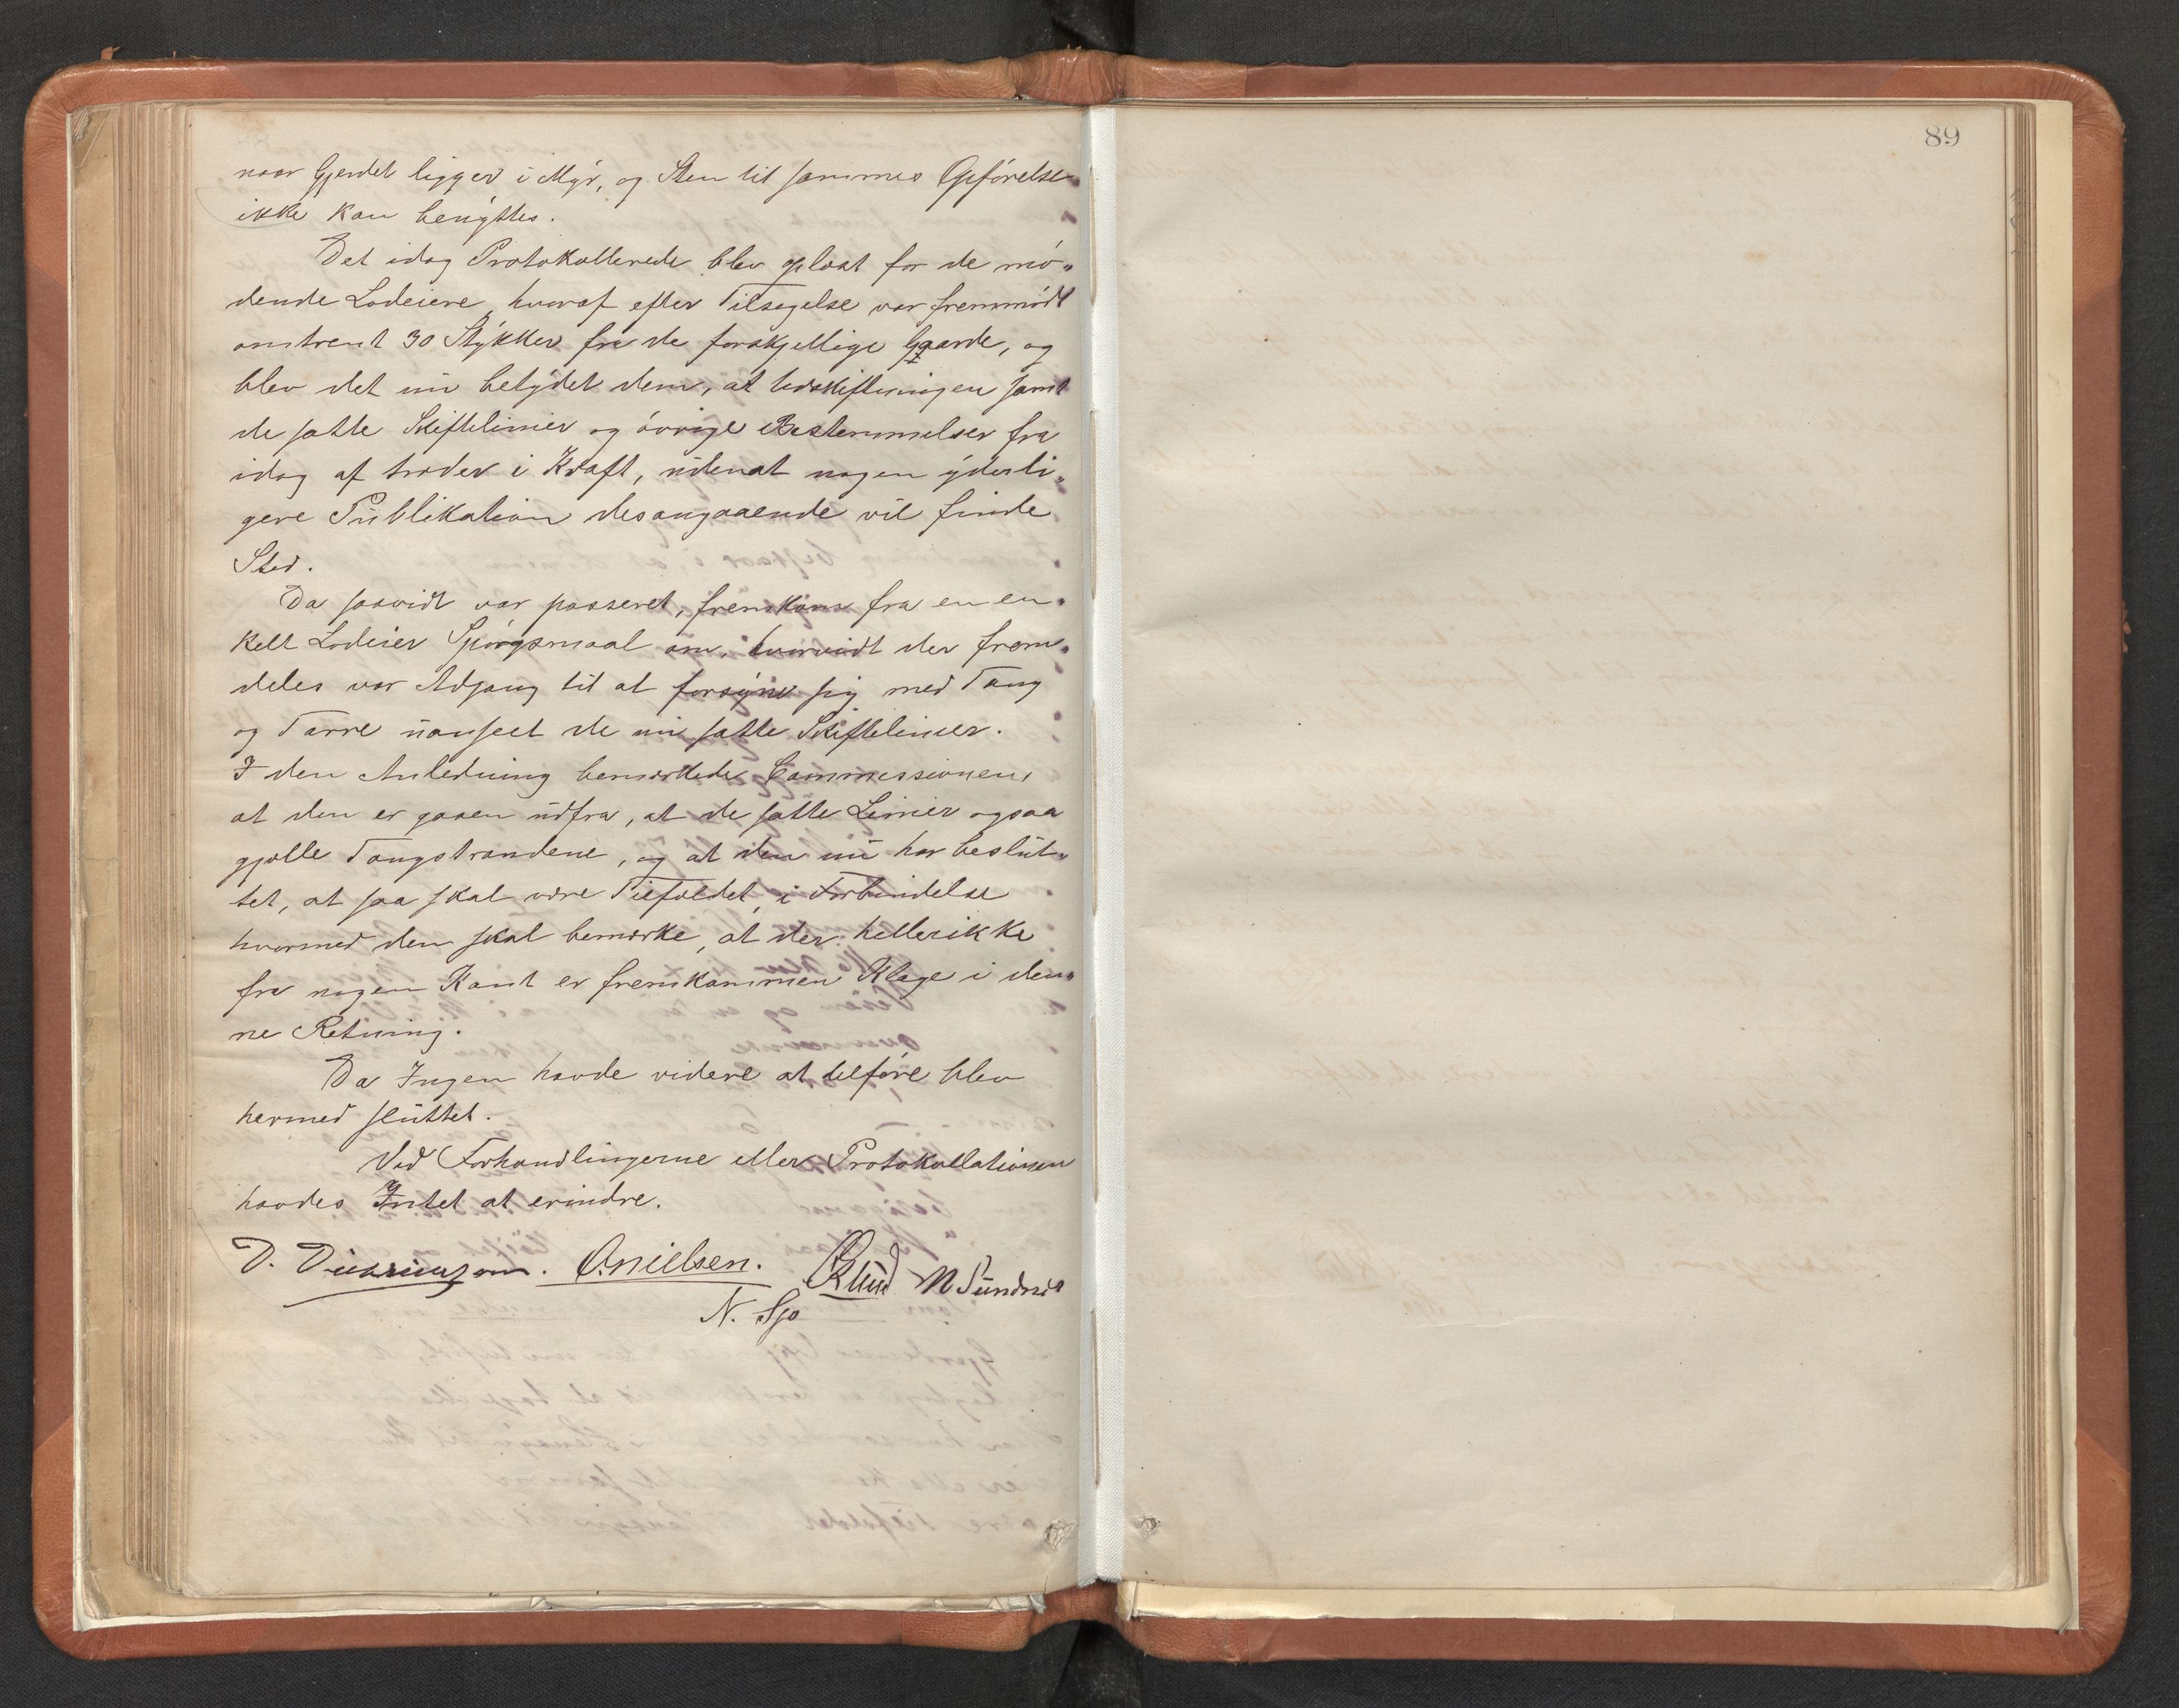 naar Gjerdet ligger i Myr, og Sten til sammes Opførelse
ikke kan benyttes.
Det idag Protokollerede blev oplæst for de mø„
dende Lodeiere, hvoraf efter Tilsigelse var fremmødt
omtrent 30 Stykker fra de forskjellige Gaarde, og
blev det nu betydet dem, at Udskiftningen samt
de satte Skiftelinier og øvrige Bestemmelser fra
idag af træder i Kraft, uden at nogen yderli„
gere Publikation desangaaende vil finde
Sted.
Da saavidt var passeret, fremkom fra en en„
kelt Lodeier Spørgsmaal om, hvorvidt der frem„
deles var Adgang til at forsyne sig med Tang
og Tarre uanseet de nu satte Skiftelinier.
I den Anledning bemærkede Commissionen,
at den er gaaen udfra, at de satte Linier ogsaa
gjælle Tangstrandene, og at den nu har beslut„
tet, at saa skal være Tilfældet, i Forbindelse
hvormed den skal bemærke, at der heller ikke
fra nogen Kant er fremkommen Klage i den„
ne Retning.
Da Ingen havde videre at tilføre blev
hermed sluttet.
Ved Forhandlingerne eller Protokollationen
havdes Intet at erindre.
D. O. Nielsen. M Sundnes
N. Sjo
89